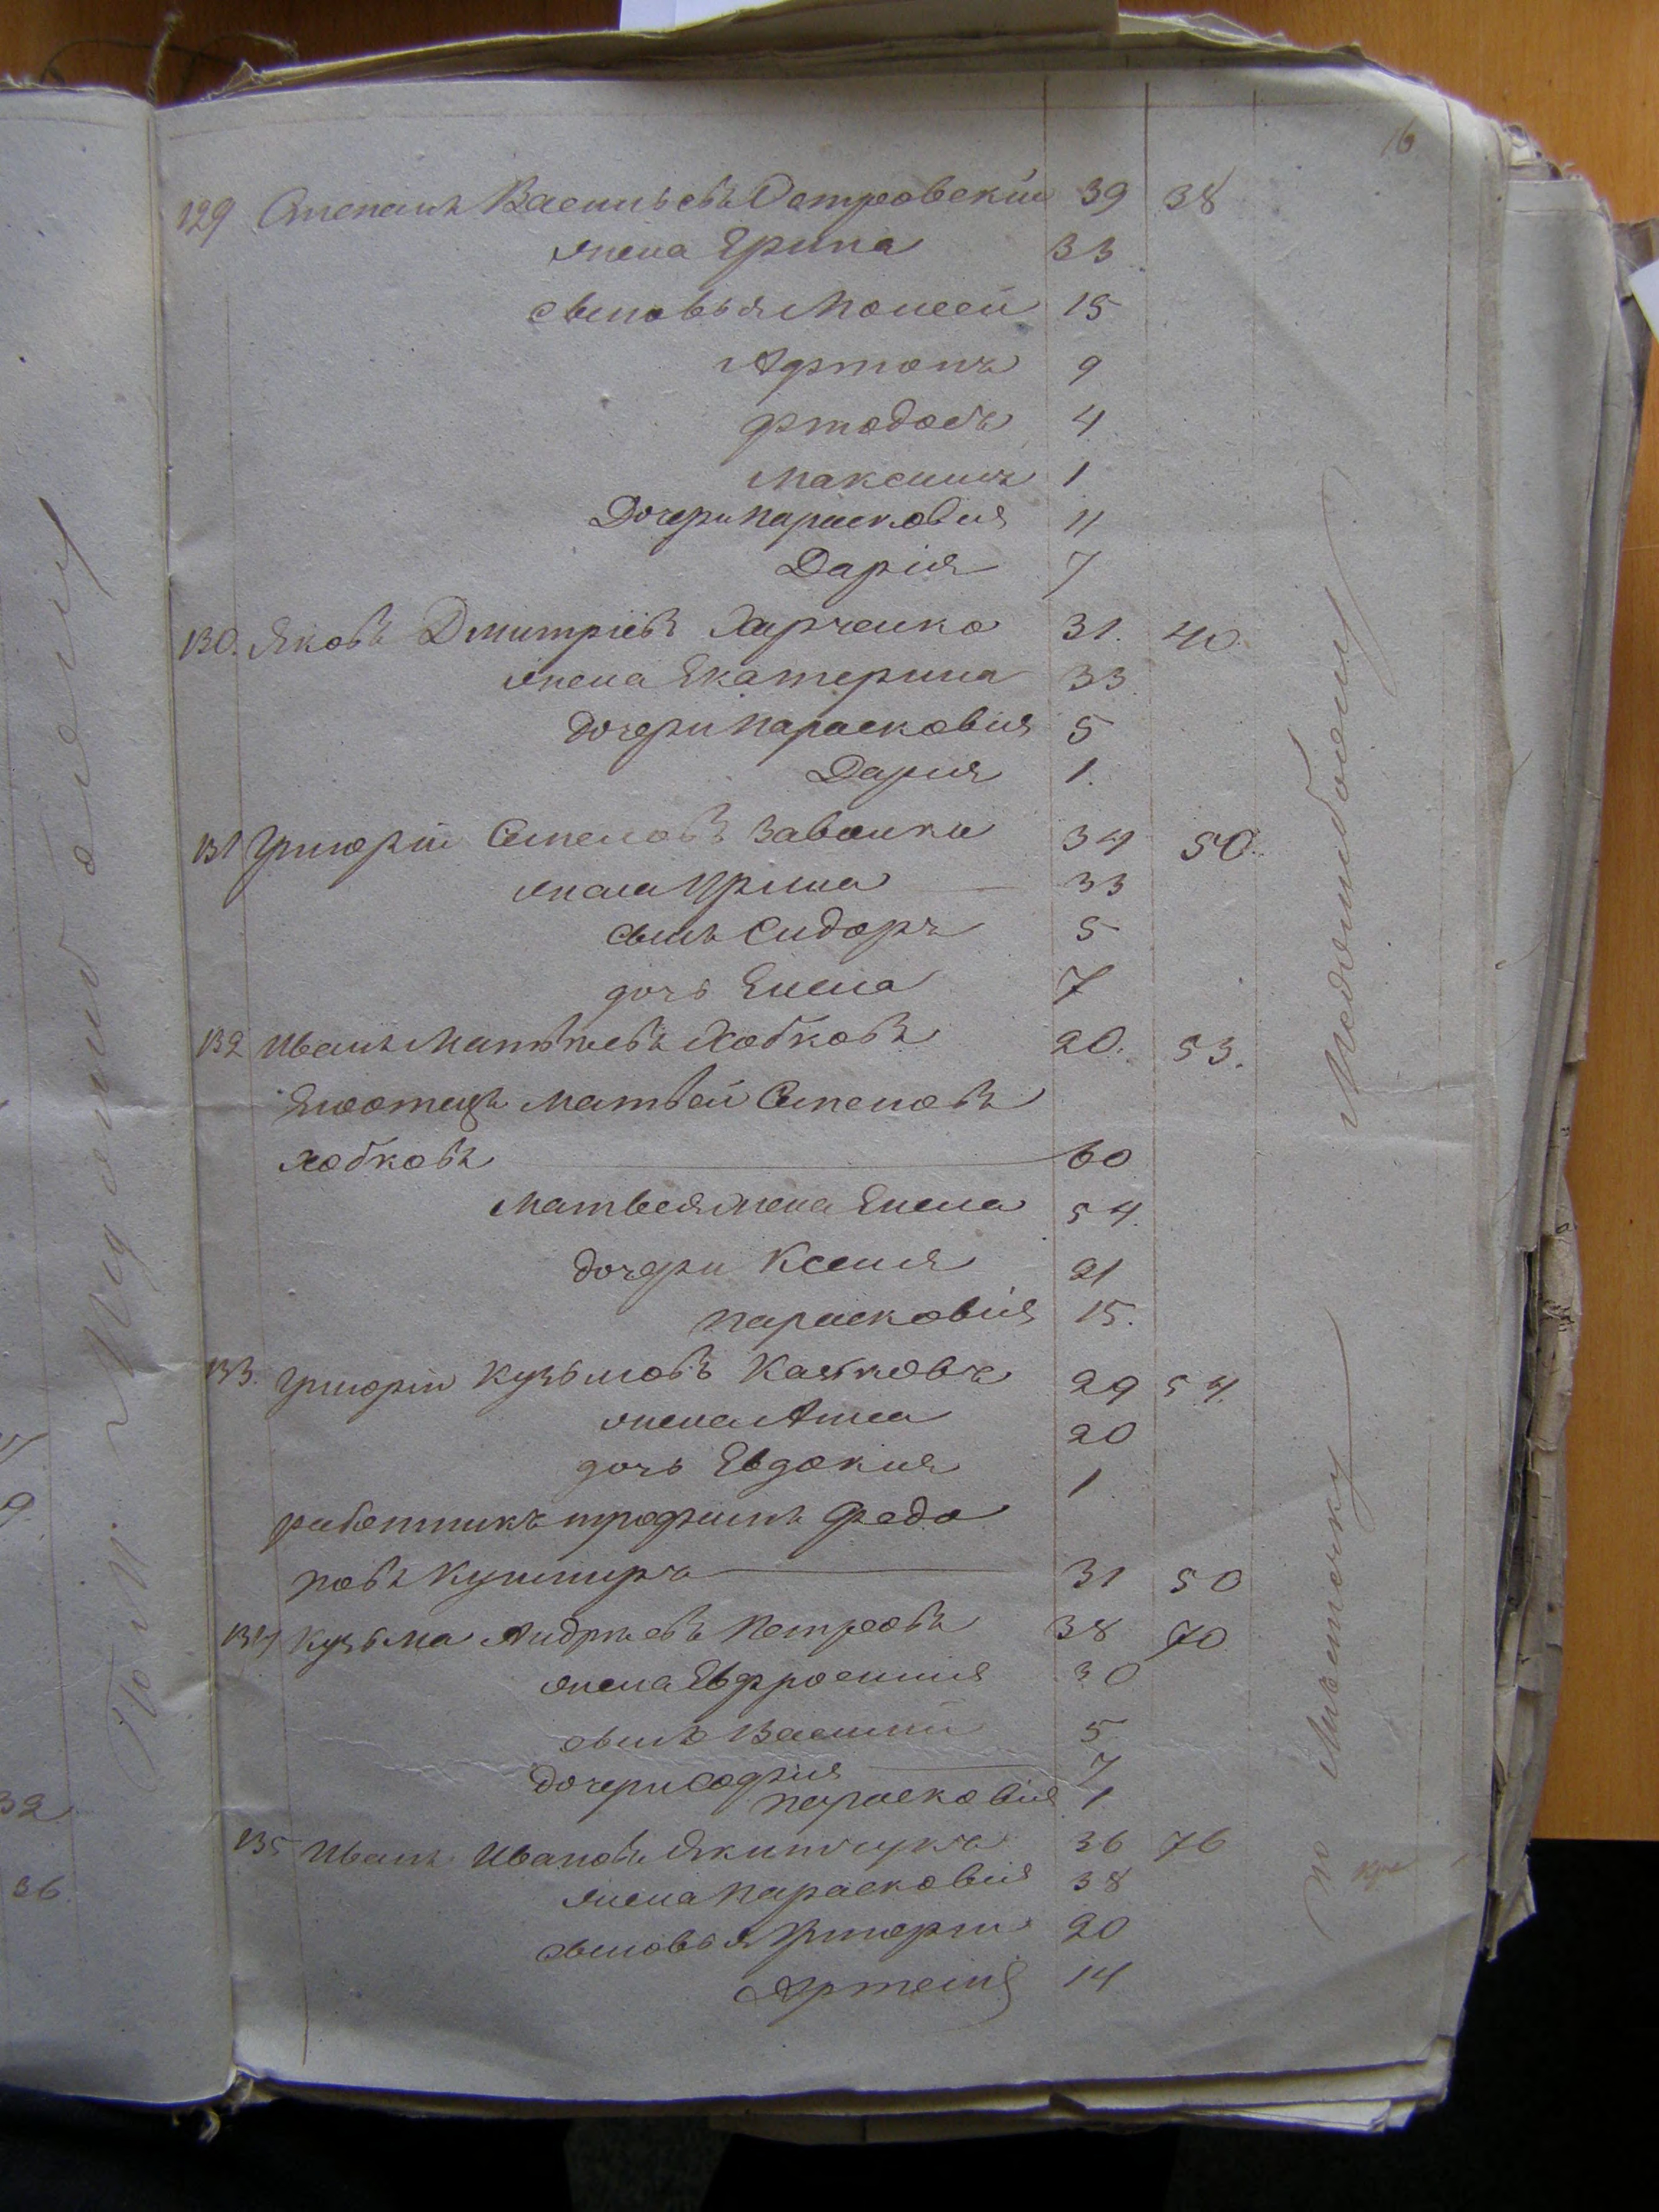 16
129 Степанъ Васильевъ Островскій 39 38
жена Ерина 33
сыновья Моисей 15
Антонъ 9
Федосъ 4
Максимъ 1
Дочери Парасковия 11
Дарія 7
130. Яковъ Дмитріевъ Харченко 31. 40.
жена Екатерина 33
дочери Парасковия 5
Дария 1.
131 Григорій Семеновъ 34 50.
жена Ирина 33
сынъ Сидоръ 5
дочь Елена 7
132 Иванъ Матвѣевъ Хобковъ 20. 53.
Его отецъ Матвей Семеновъ
Хобковъ 60
Матвея жена Елена 54.
дочери Ксения 21
Парасковія 15.
133. Григорій Кузьмовъ 29 54.
жена Анна 20
дочь Евдокия 1
работникъ Трофимъ Федо
ровъ Кушниръ 31 50
134 Кузьма Андріевъ Петровъ 38 70
жена Евфросиния 30
сынъ Василий 5
дочери Софія 7
Парасковія 1
135 Иванъ Ивановъ Якимчукъ 36 76
жена Парасковія 38
сыновья Григорій 20
Артемій 14
32
36